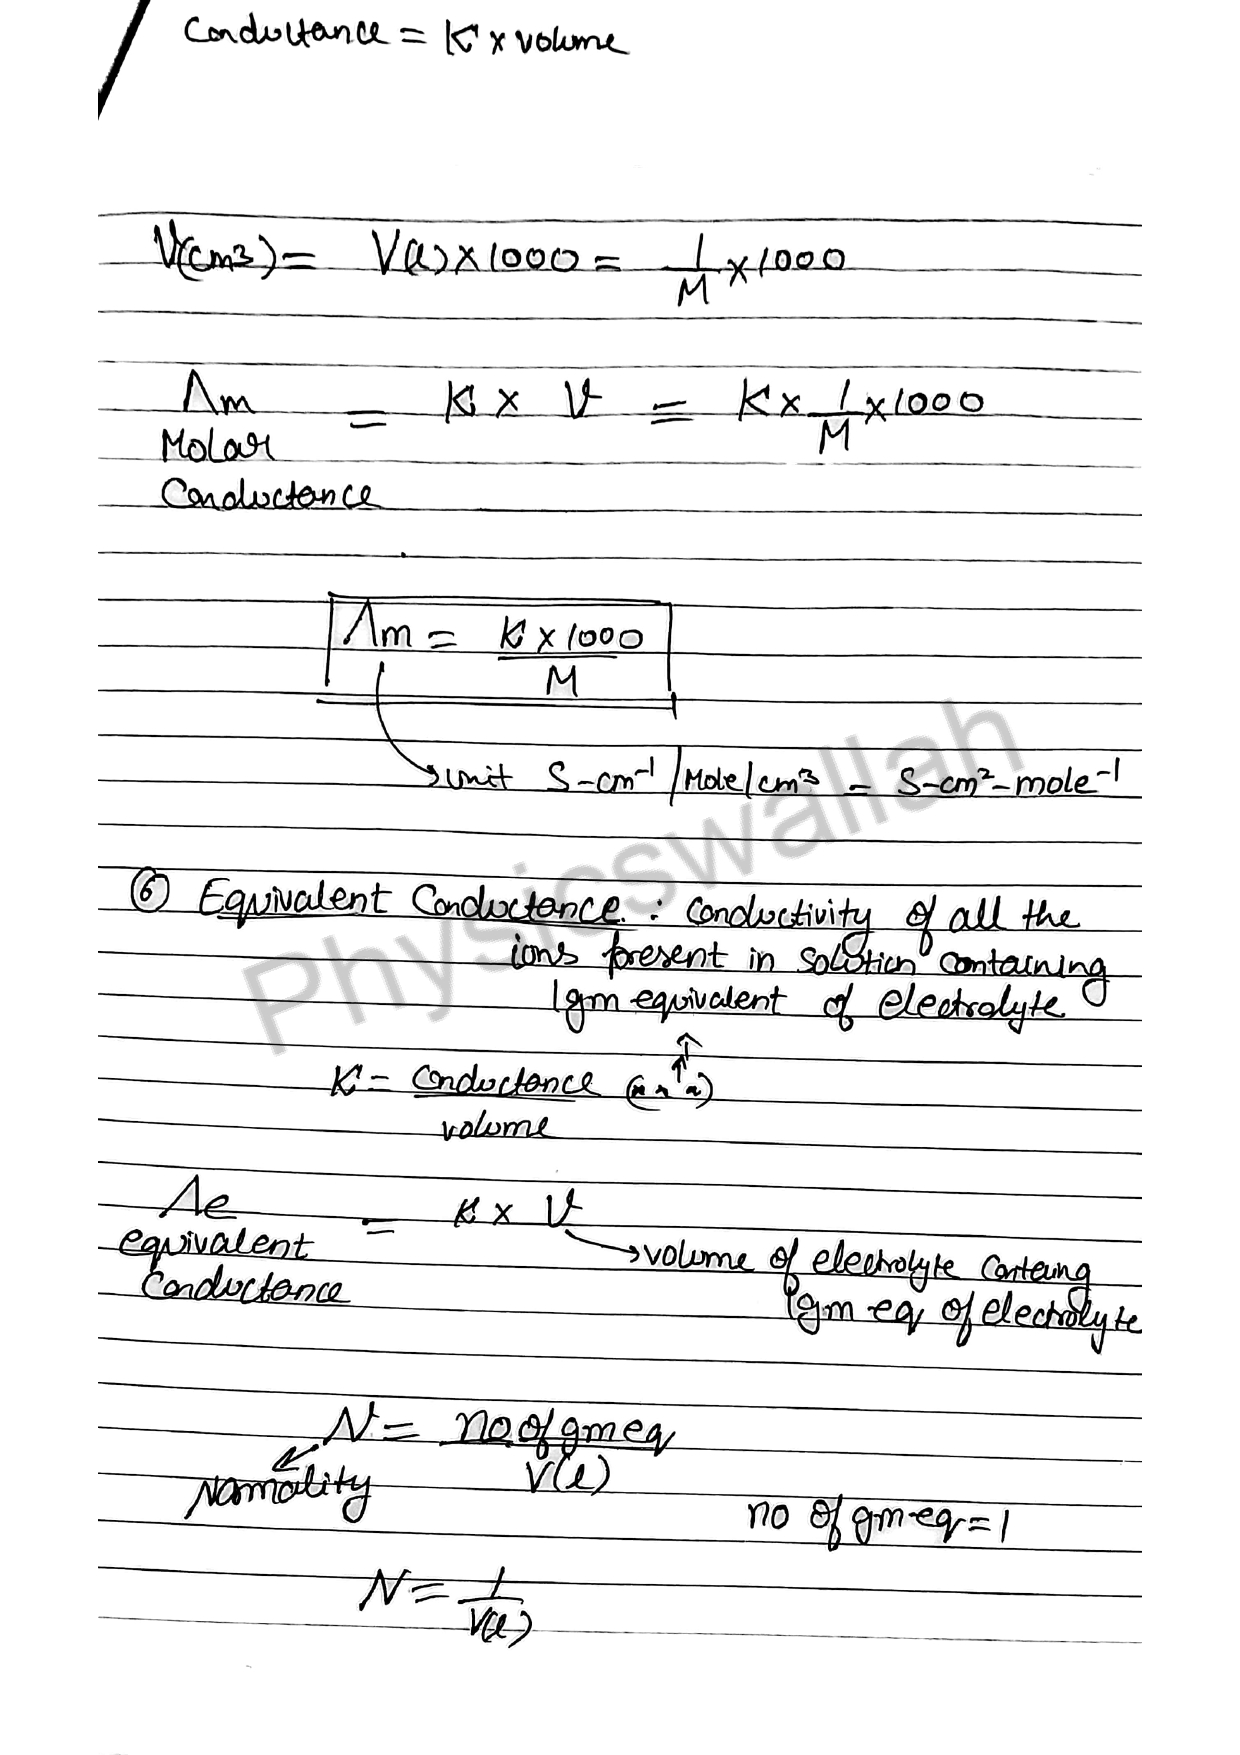 Conductance = K × volume
V(cm3) = V(l) × 1000 = 1/M × 1000
Λm = K × V = K × 1/M × 1000
Molar
Conductance
Λm = K × 1000 / M
unit S-cm⁻¹ / Mole/cm³ = S-cm²-mole⁻¹
⑥ Equivalent Conductance : Conductivity of all the
ions present in solution containing
1gm equivalent of electrolyte
K = Conductance / volume
Λe = K × V
equivalent
Conductance
→ volume of electrolyte
1gm eq of electrolyte
N = no of gm eq / V(l)
Normality
no of gm-eq = 1
N = 1 / V(l)
Physicswallah